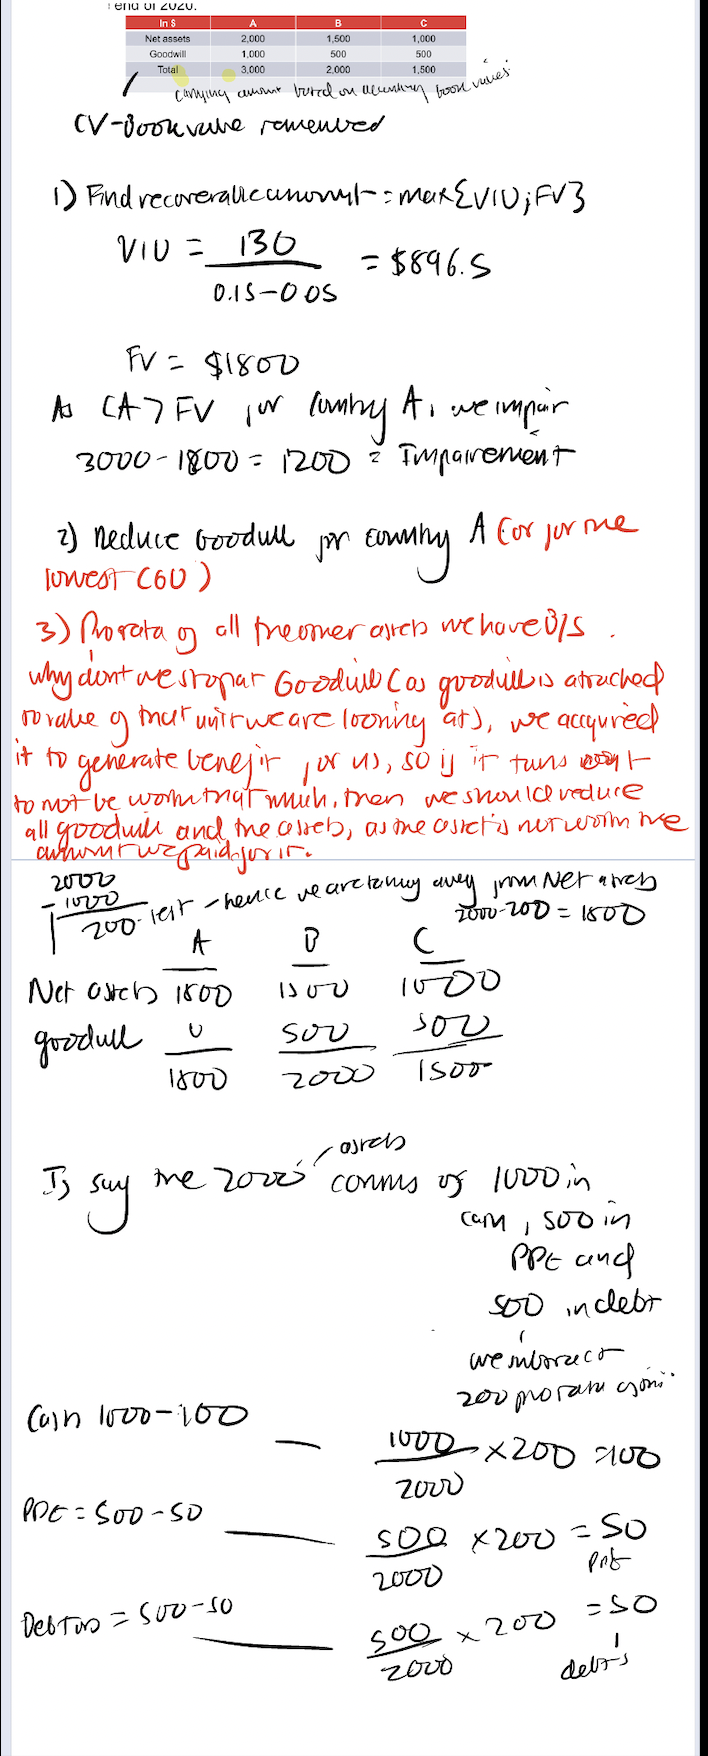 end of 2020.
In $ A B C
Net assets 2,000 1,500 1,000
Goodwill 1,000 500 500
Total 3,000 2,000 1,500
carrying amount based on accounting book values.
CV-Book value remembered
1) Find recoverable amount = max{VIU; FV}
VIU = 130 / 0.15-0.05 = $896.5
FV = $1800
As CA > FV for Country A, we impair
3000-1800 = 1200 = Impairement
2) Reduce Goodwill for country A (or for the
lowest CGU)
3) Prorata of all the other assets we have B/S.
why dont we stop at Goodwill (as goodwill is attached
to value of that unit we are looking at), we acquired
it to generate benefit for us, so if it turns out
to not be worth that much, then we should reduce
all goodwill and the assets, as the asset is not worth the
amount we paid for it.
2000
-1000
200 left - hence we are taking away from Net assets
2000-200 = 1800
A B C
Net assets 1800 1500 1000
goodwill 0 500 500
1800 2000 1500
If say the 2000 assets comms of 1000 in
cash, 500 in
PPE and
500 in debt
we subtract
200 prorata
Cash 1000-100 — 1000/2000 × 200 = 100
PPE = 500-50 — 500/2000 × 200 = 50
PPE
Debtors = 500-50 — 500/2000 × 200 = 50
debts